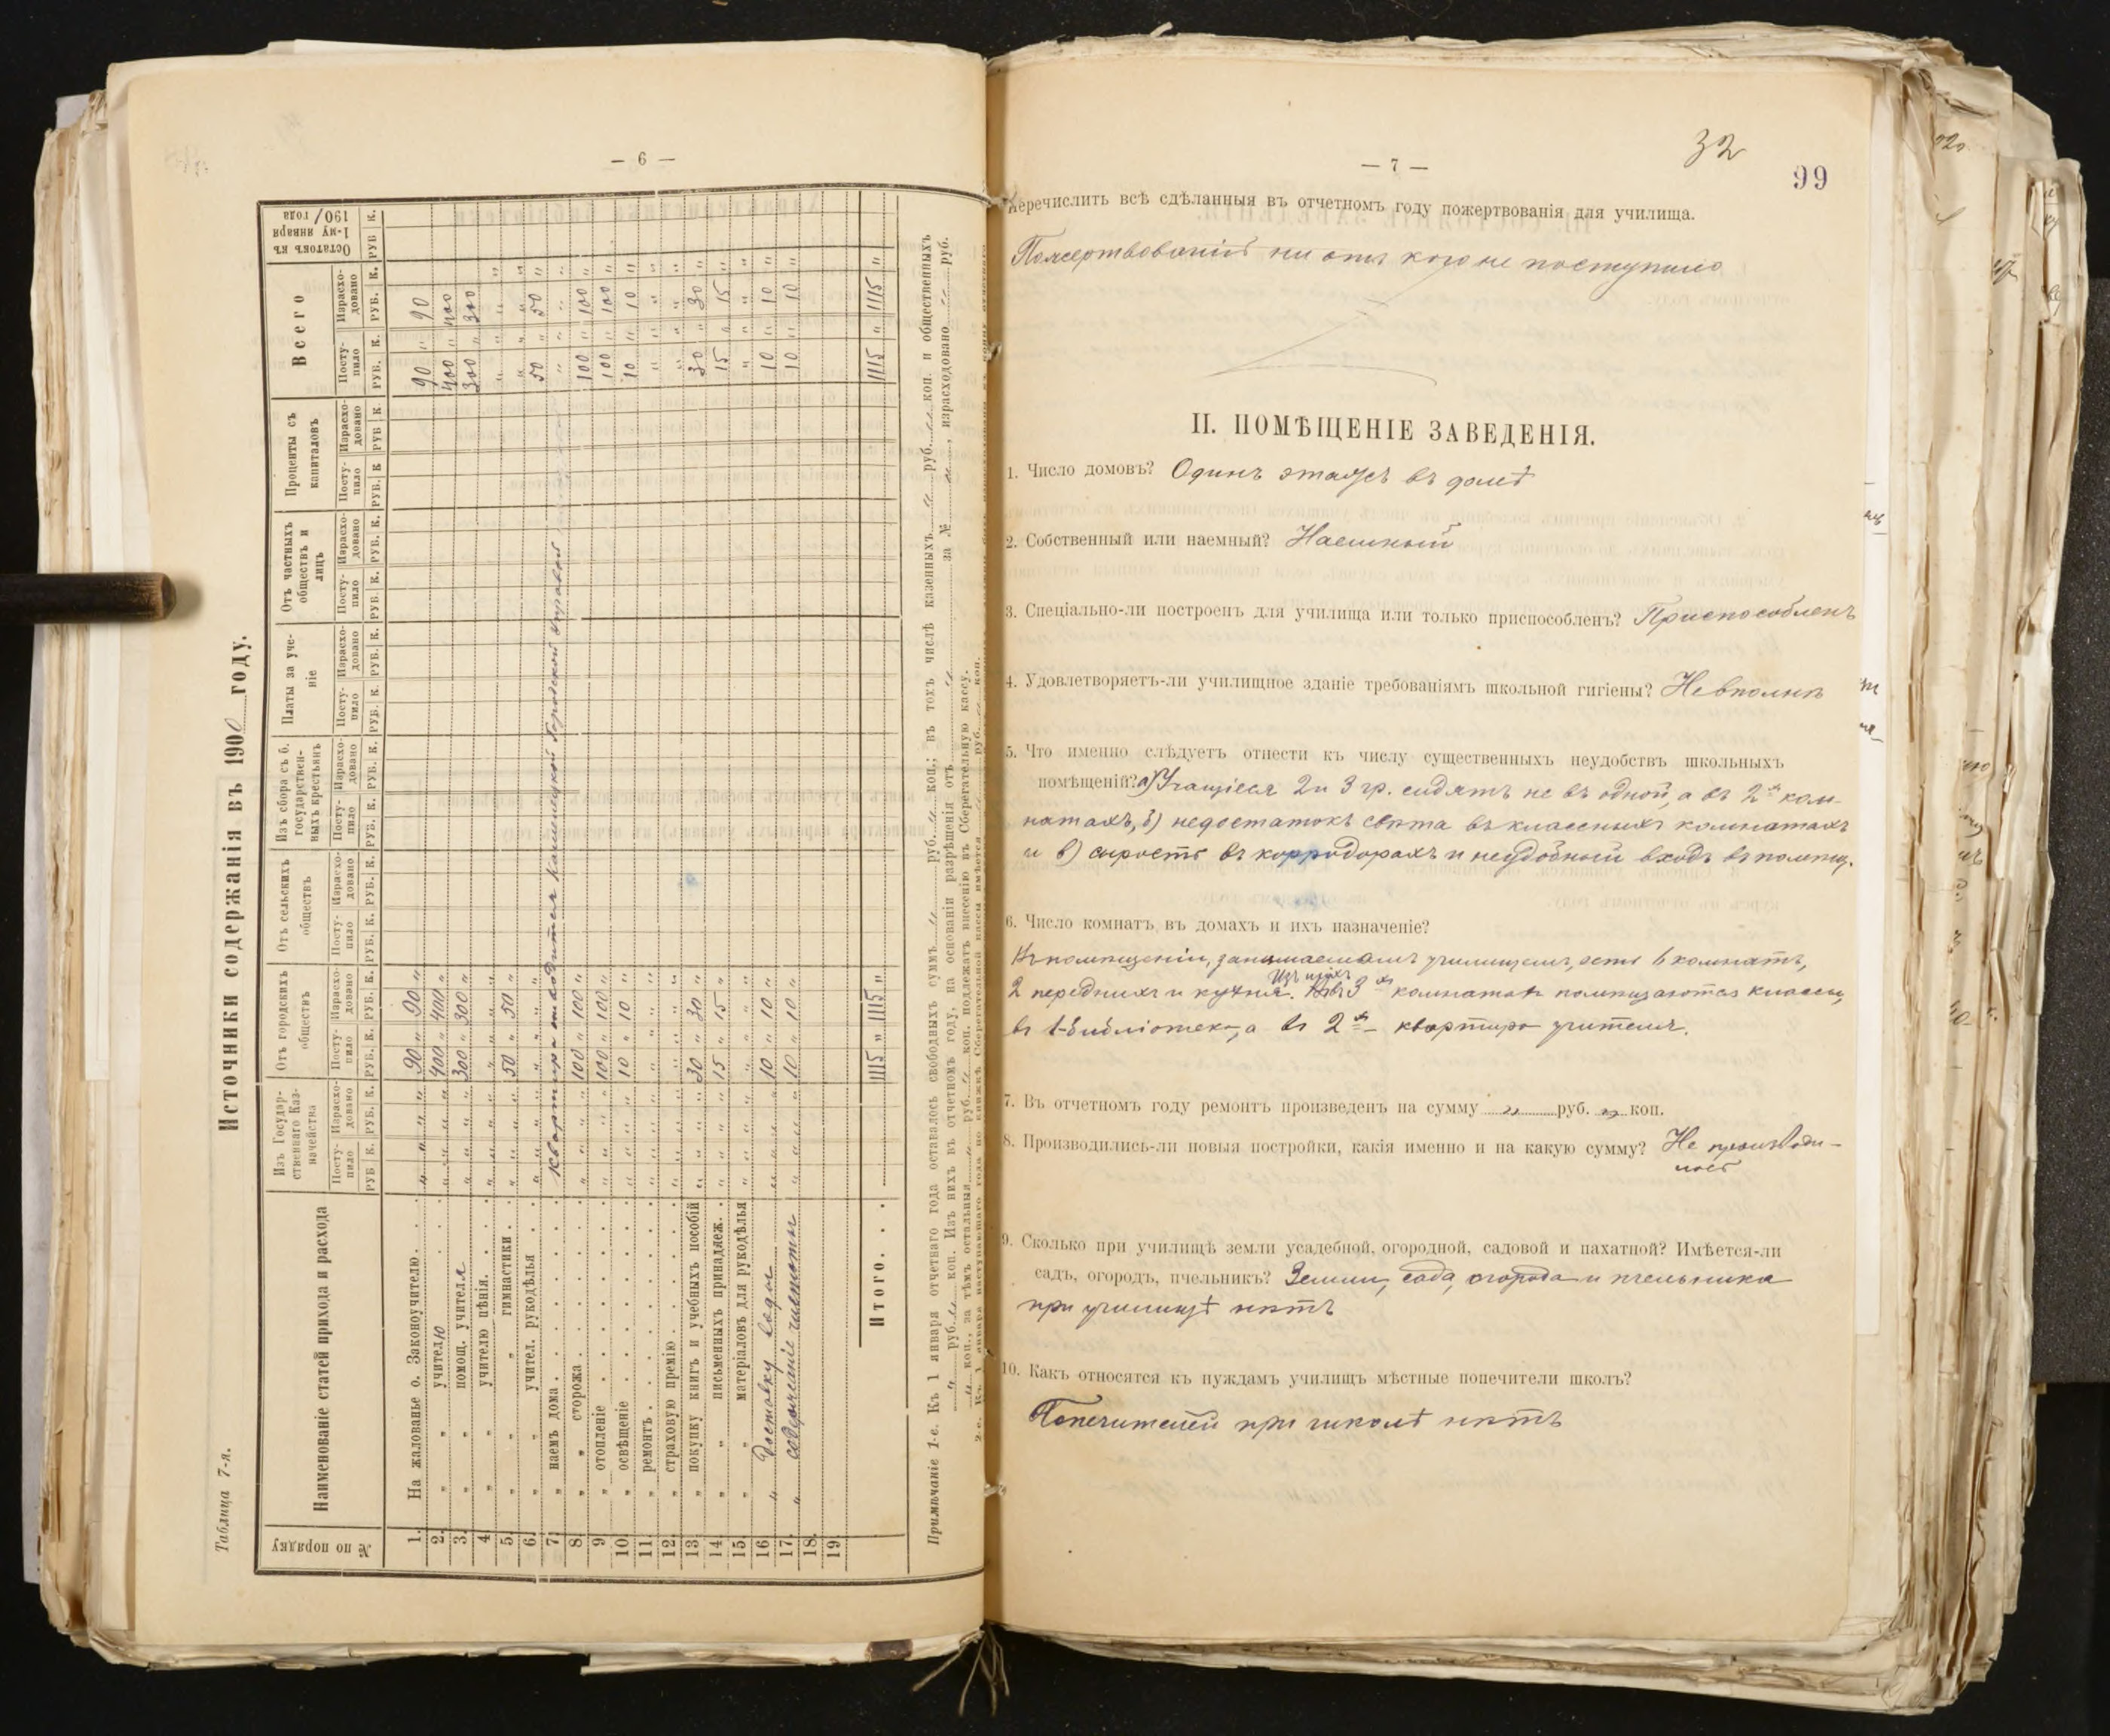 — 6 —
Таблица 7-я.
Источники содержанія въ 1900 году.
№ по порядку
Наименованіе статей прихода и расхода
Изъ Государственнаго Казначейства
Отъ городскихъ обществъ
Отъ сельскихъ обществъ
Изъ сбора съ б. государственныхъ крестьянъ
Платы за ученіе
Отъ частныхъ обществъ и лицъ
Проценты съ капиталовъ
Всего
Остатокъ къ 1-му января 190/ года
Поступило Израсходовано
РУБ. К. РУБ. К.
1. На жалованье о. Законоучителю . . " " " " 90 " 90 " 90 " 90
2. " " учителю . . " " " " 400 " 400 " 400 " 400
3. " " помощ. учителя " " " " 300 " 300 " 300 " 300
4. " " учителю пѣнія . . . " " " "
5. " " " гимнастики . . " " 50 " 50 "
6. " " учител. рукодѣлья . . " " " " 50 " 50 "
7. " наемъ дома . . . Квартира отводится Городской управой
8. " " сторожа . . . " " 100 " 100 " 100 " 100 "
9. " отопленіе . . . " " 100 " 100 " 100 " 100 "
10. " освѣщеніе . . . " " 10 " 10 " 10 " 10 "
11. " ремонтъ . . . " " " "
12. " страховую премію . . . " " " "
13. " покупку книгъ и учебныхъ пособій " " 30 " 30 " 30 " 30 "
14. " " письменныхъ принадлеж. . " " 15 " 15 " 15 " 15 "
15. " " матеріаловъ для рукодѣлья " " " "
16. " доставку воды " " 10 " 10 " 10 " 10 "
17. " содержаніе чистоты " " 10 " 10 " 10 " 10 "
18.
19.
Итого . . . 1115 " 1115 " 1115 " 1115 "
Примѣчаніе 1-е. Къ 1 января отчетнаго года оставалось свободныхъ суммъ " руб. " коп.; въ томъ числѣ казенныхъ " руб. " коп. и общественныхъ
" руб. " коп. Изъ нихъ въ отчетномъ году, на основаніи разрѣшенія отъ " за № " , израсходовано " руб.
" коп., за тѣмъ остальныя " руб. " коп. подлежатъ внесенію въ Сберегательную кассу.
2-е. Къ 1 января наступающаго года по книжкѣ Сберегательной кассы имѣется руб. коп.
— 7 —
32
99
Перечислить всѣ сдѣланныя въ отчетномъ году пожертвованія для училища.
Пожертвованій ни отъ кого не поступило
II. ПОМѢЩЕНІЕ ЗАВЕДЕНІЯ.
1. Число домовъ? Одинъ этажъ въ домѣ
2. Собственный или наемный? Наемный
3. Спеціально-ли построенъ для училища или только приспособленъ? Приспособленъ
4. Удовлетворяетъ-ли училищное зданіе требованіямъ школьной гигіены? Не вполнѣ
5. Что именно слѣдуетъ отнести къ числу существенныхъ неудобствъ школьныхъ
помѣщеній? а) Учащіеся 2 и 3 гр. сидятъ не въ одной, а въ 2-хъ ком-
натахъ, б) недостатокъ свѣта въ классныхъ комнатахъ
и в) сырость въ корридорахъ и неудобный входъ въ помѣщ.
6. Число комнатъ въ домахъ и ихъ назначеніе?
Въ помѣщеніи, занимаемомъ училищемъ, есть 6 комнатъ,
2 переднихъ и кухня. Изъ нихъ въ 3-хъ комнатахъ помѣщаются классы,
въ 1-библіотека, а въ 2-хъ квартира учителя.
7. Въ отчетномъ году ремонтъ произведенъ на сумму " руб. " коп.
8. Производились-ли новыя постройки, какія именно и на какую сумму? Не производи-
лось
9. Сколько при училищѣ земли усадебной, огородной, садовой и пахатной? Имѣется-ли
садъ, огородъ, пчельникъ? Земли, сада, огорода и пчельника
при училищѣ нѣтъ
10. Какъ относятся къ нуждамъ училищъ мѣстные попечители школъ?
Попечителей при школѣ нѣтъ